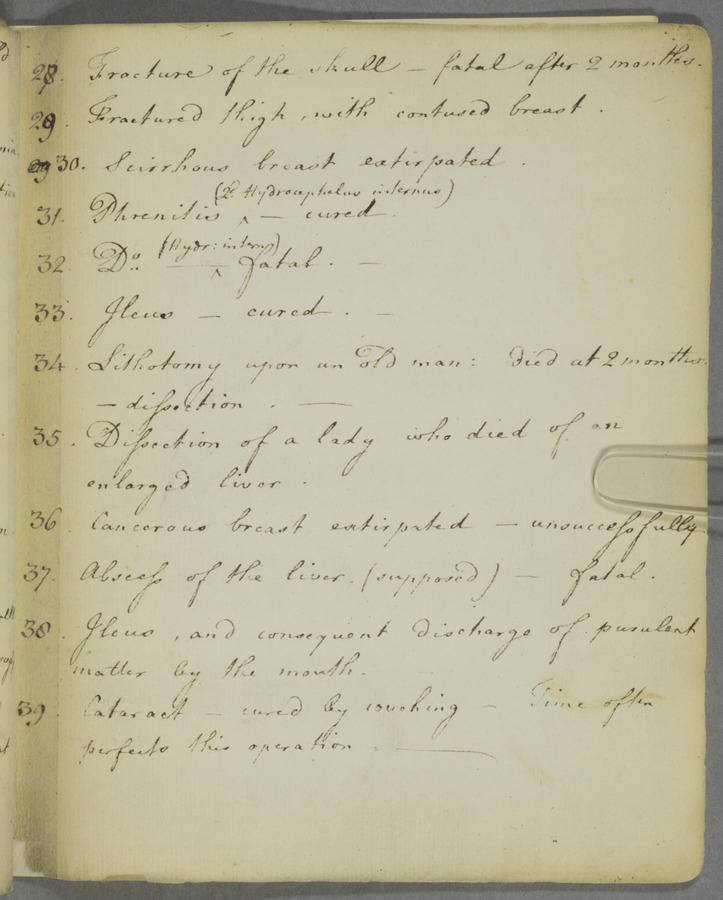 28. Fracture of the skull – fatal after 2 months.
29. Fractured thigh, with contused breast.
30. Scirrhous breast extirpated.
(2d Hydrocephalus internus)
31. Phrenitis ^ – cured
(Hydr: intern:)
32. Do. ^ fatal. –
33. Ileus – cured. –
34. Lithotomy upon an old man: died at 2 months.
– dissection. –
35. Dissection of a lady who died of an
enlarged liver.
36. Cancerous breast extirpated – unsuccessfully.
37. Abscess of the liver. (supposed) – fatal.
38. Ileus, and consequent discharge of purulent
matter by the mouth.
39. Cataract – cured by couching – Time often
perfects this operation. –